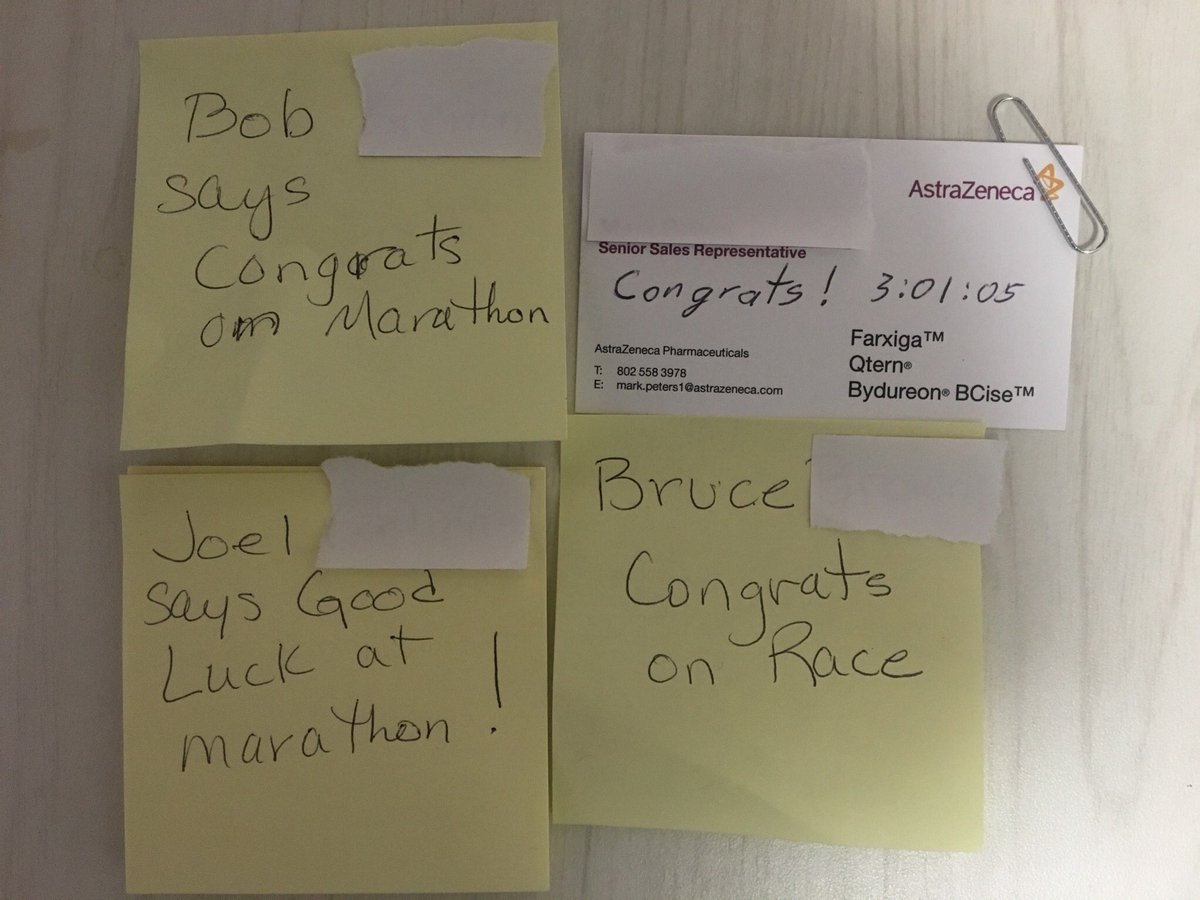 Bob
says
Congrats
on Marathon
AstraZeneca
Senior Sales Representative
Congrats! 3:01:05
AstraZeneca Pharmaceuticals
T: 802 558 3978
E: mark.peters1@astrazeneca.com
Farxiga™
Qtern®
Bydureon® BCise™
Joel
says Good
Luck at
marathon!
Bruce
Congrats
on Race